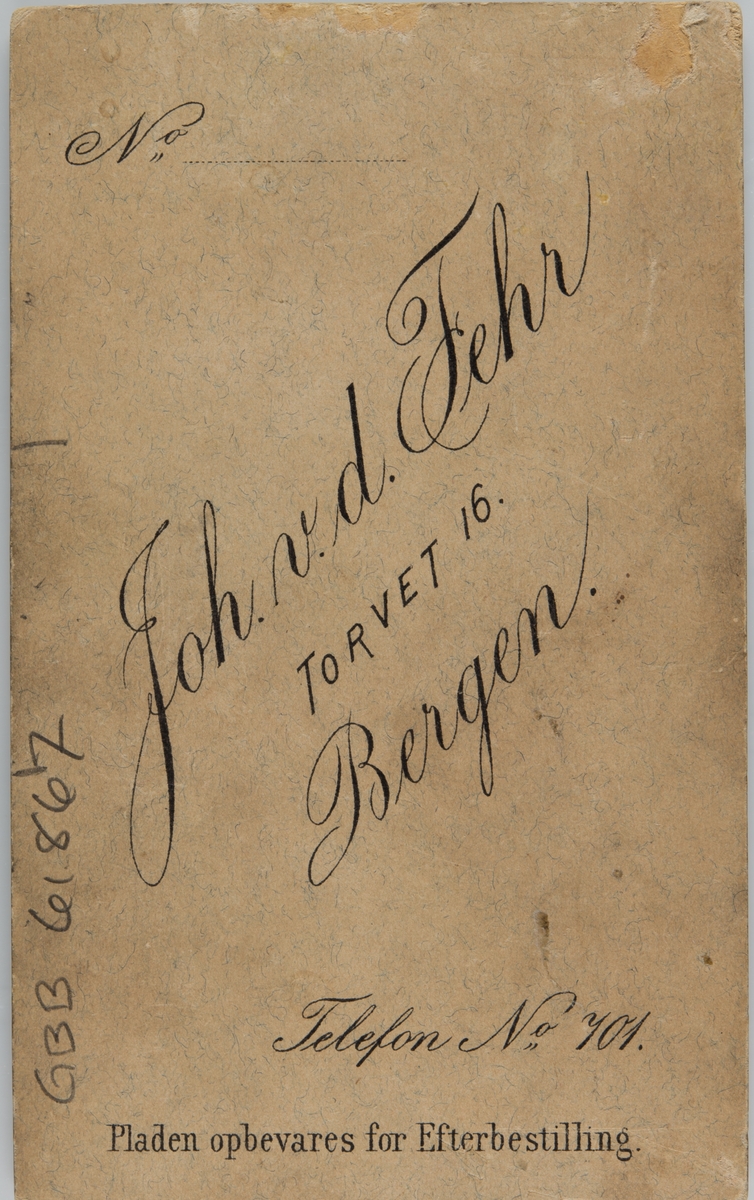 No
Joh. v. d. Fehr
TORVET 16.
Bergen.
Telefon No 701.
Pladen opbevares for Efterbestilling.
GBB 61867